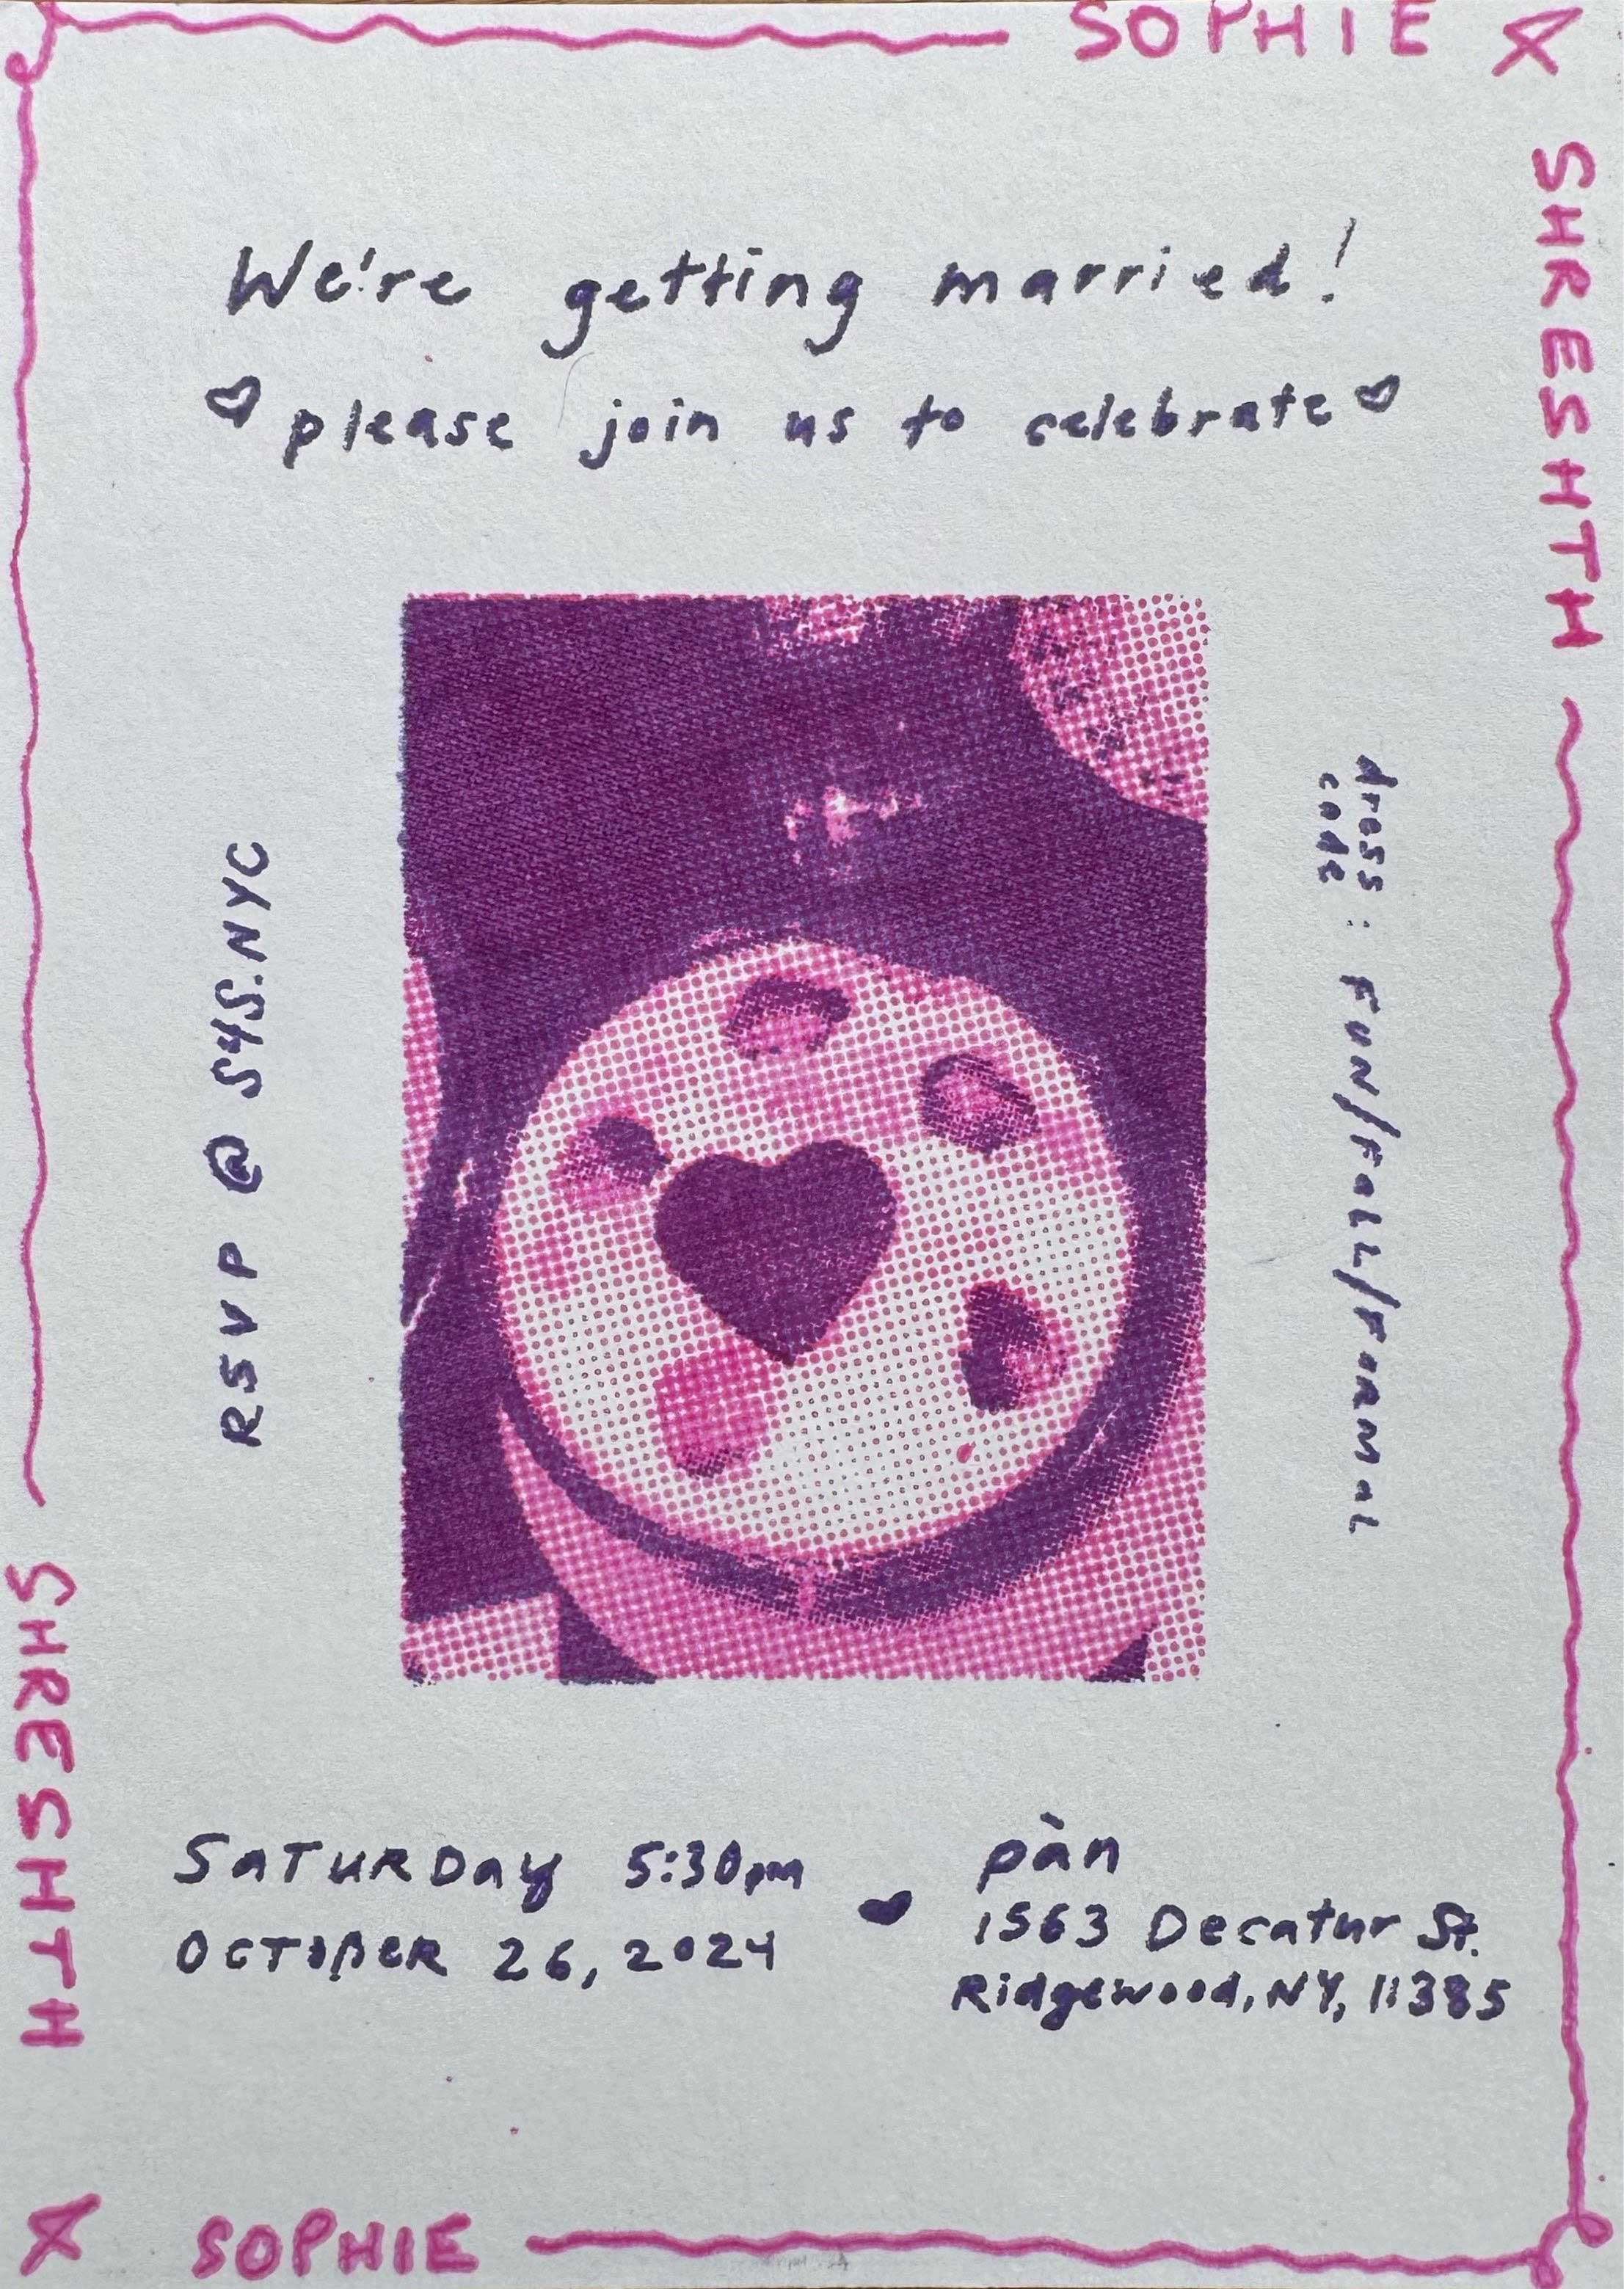 SOPHIE &
SHRESHTH
We're getting married!
please join us to celebrate
RSVP @ S4S.NYC
dress code: FUN/FALL/FORMAL
SATURDAY 5:30pm
OCTOBER 26, 2024
pàn
1563 Decatur St.
Ridgewood, NY, 11385
SOPHIE &
SHRESHTH